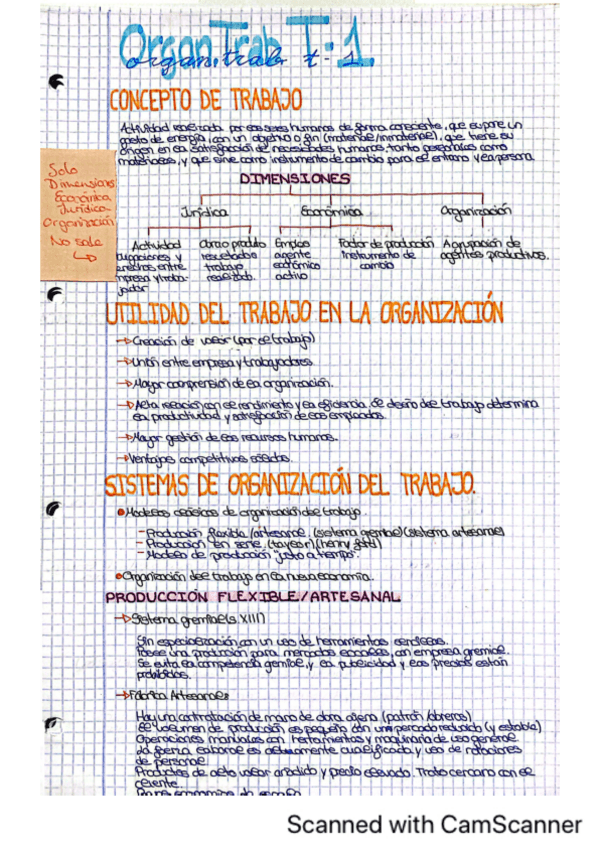 OrganTrab T:1
organ.trab t:1.
CONCEPTO DE TRABAJO
Actividad realizada por los seres humanos de forma consciente, que supone un
gasto de energía, con un objetivo o fin (material/inmaterial), que tiene su
origen en la satisfacción de necesidades humanas, tanto personales como
materiales, y que sirve como instrumento de cambio para el entorno y la persona.
Solo
Dimensiones
Económica
Jurídica
Organización
No sale
DIMENSIONES
Jurídica Económica Organización
Actividad
obligaciones y
derechos entre
empresa y traba-
jador
Como produto
resultados
trabajo
realizado.
Empleo
agente
económico
activo
Factor de producción
Instrumento de
cambio
Agrupación de
agentes productivos.
UTILIDAD DEL TRABAJO EN LA ORGANIZACIÓN
→Creación de valor (por el trabajo)
→Unión entre empresa y trabajadores
→Mayor comprensión de la organización.
→Alta relación con el rendimiento y la eficiencia de diseño del trabajo determina
la productividad y satisfacción de los empleados.
→Mayor gestión de los recursos humanos.
→Ventajas competitivas
SISTEMAS DE ORGANIZACIÓN DEL TRABAJO.
•Modelos clásicos de organización del trabajo.
-Producción flexible/artesanal. (sistema gremial)(sistema artesanal)
-Producción en serie. (taylor)(henry ford)
-Modelo de producción "justo a tiempo".
•Organización del trabajo en la nueva economía.
PRODUCCIÓN FLEXIBLE/ARTESANAL
→Sistema gremial(s.XIII)
Sin especialización con un uso de herramientas sencillas.
una producción para mercados locales, con empresa gremial.
Se evita la competencia gremial, y la publicidad y los precios están
prohibidos.
→Fábrica Artesanales
Hay una contratación de mano de obra ajena (patrón/obreros)
El volumen de producción es pequeño con un mercado reducido (y estable)
Operaciones manuales con herramientas y maquinaria de uso general
La fuerza laboral es altamente cualificada y uso de rotaciones
de personal
Productos de alto valor añadido y precio elevado. Trato cercano con el
cliente.
Scanned with CamScanner